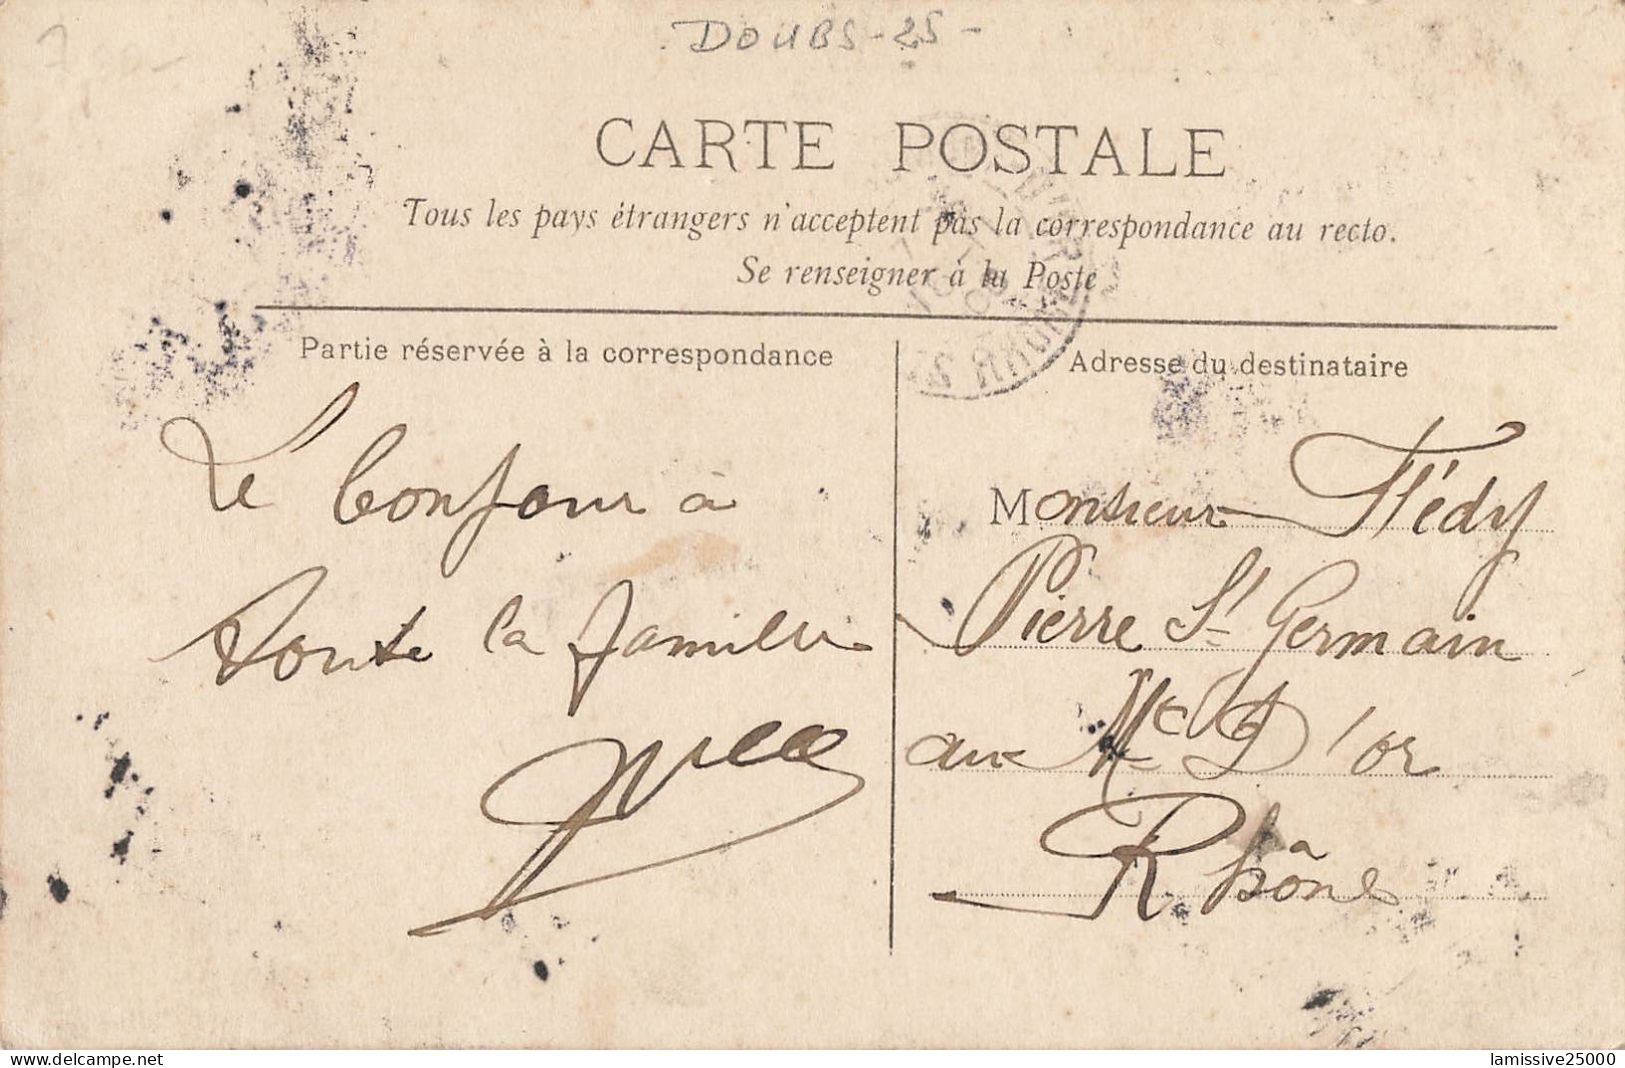 DOUBS-25-
CARTE POSTALE
Tous les pays étrangers n'acceptent pas la correspondance au recto.
Se renseigner à la Poste
Partie réservée à la correspondance
Le bonjour à
toute la famille
Adresse du destinataire
Monsieur Flédy
Pierre St Germain
au Mt D'or
Rhône
delcampe.net
lamissive25000